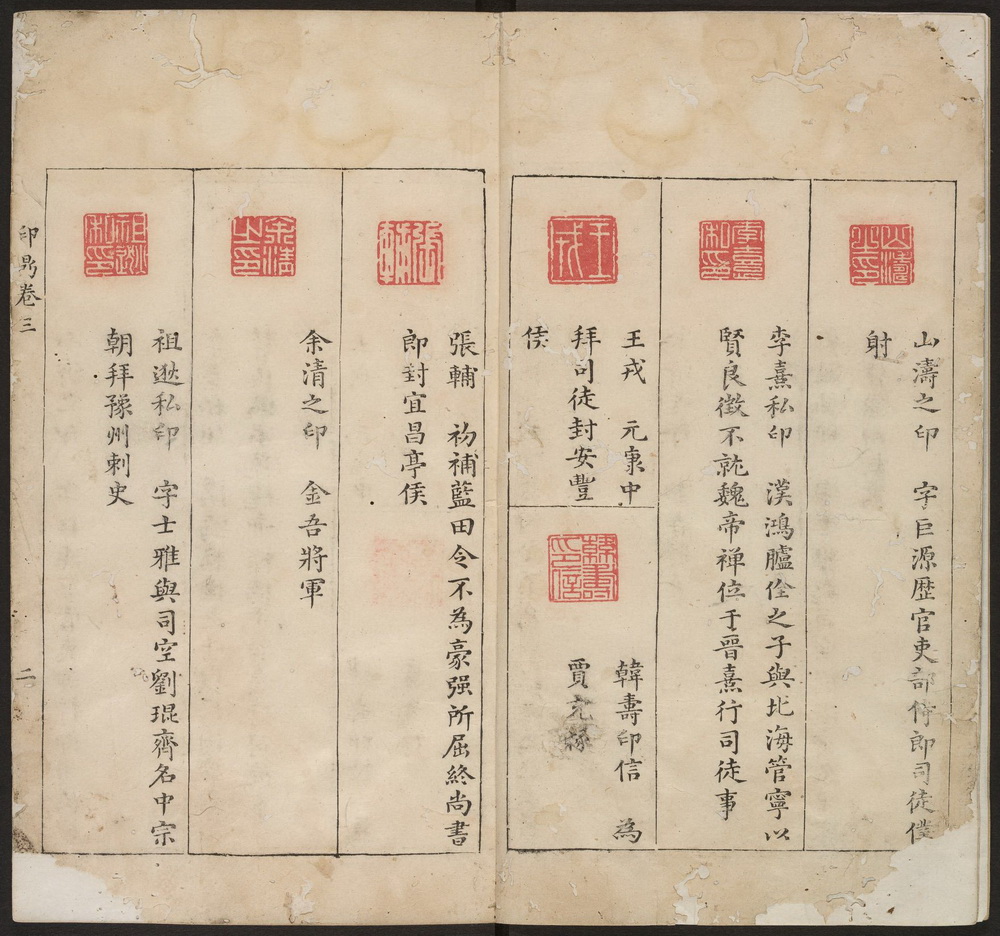 山濤之印
山濤之印　字巨源歴官吏部侍郎司徒僕
射
李憙私印
李憙私印　漢鴻臚佺之子與北海管寧以
賢良徴不就魏帝禅位于晉憙行司徒事
王戎
王戎　元康中
拜司徒封安豐
侯
韓壽印信
韓壽印信　為
賈充掾
張輔
張輔　初補藍田令不為豪强所屈終尚書
郎封宜昌亭侯
余清之印
余清之印　金吾將軍
祖逖私印
祖逖私印　字士雅與司空劉琨齊名中宗
朝拜豫州刺史
卷三
二